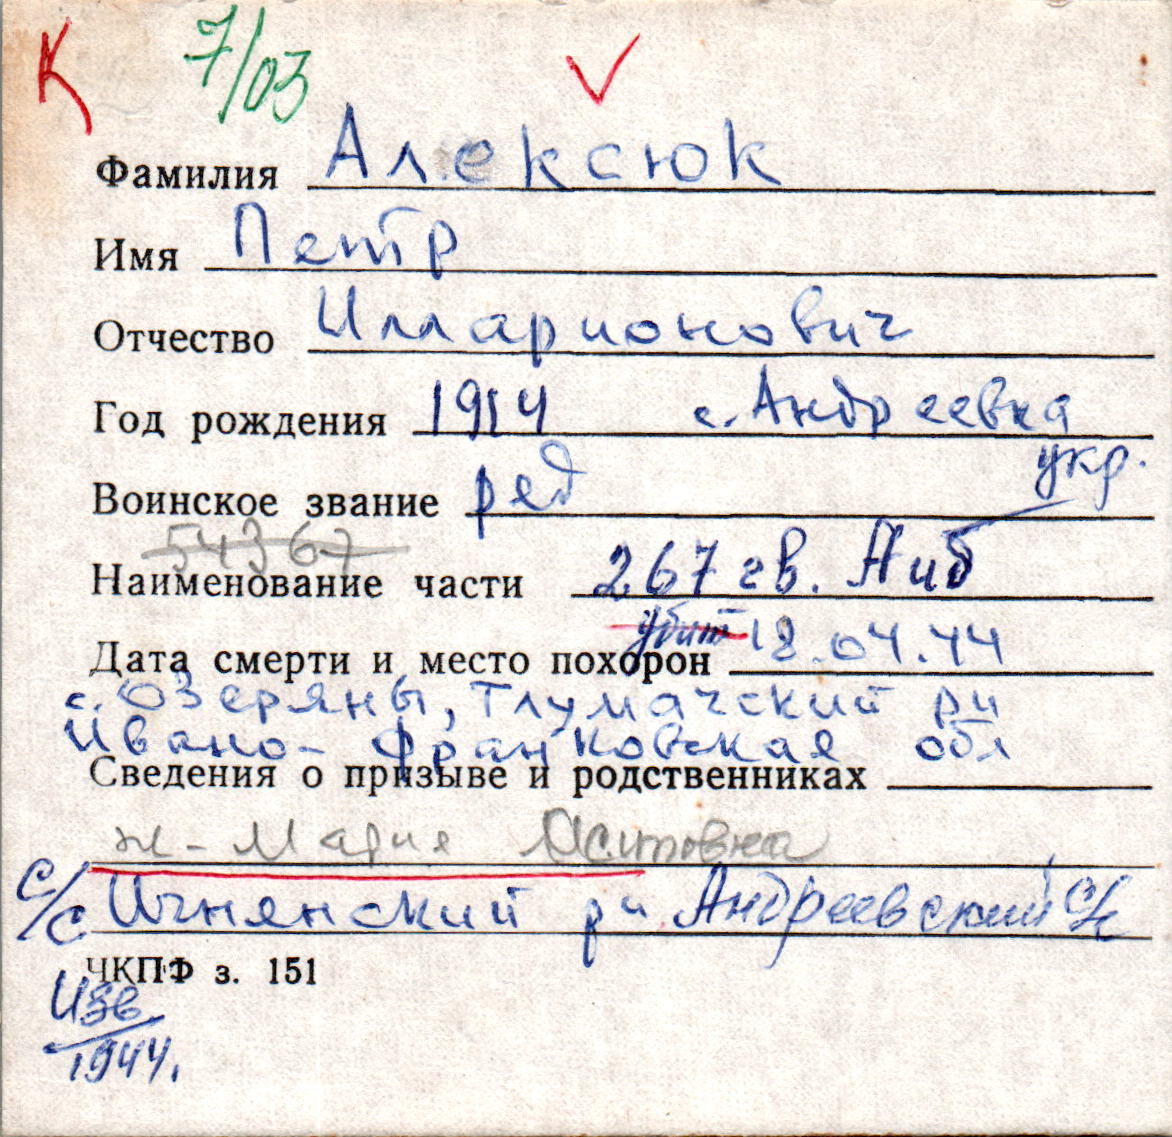 К 7/03
Фамилия Алексюк
Имя Петр
Отчество Илларионович
Год рождения 1914 с. Андреевка
укр.
Воинское звание ряд
54367
Наименование части 267 гв. Апб
убит 18.04.44
Дата смерти и место похорон
с. Озеряны, Тлумачский рн
Ивано-Франковская обл
Сведения о призыве и родственниках
ж - Мария Осиповна
с/с Ичнянский рн Андреевский с/с
ЧКПФ з. 151
Изв
1944.